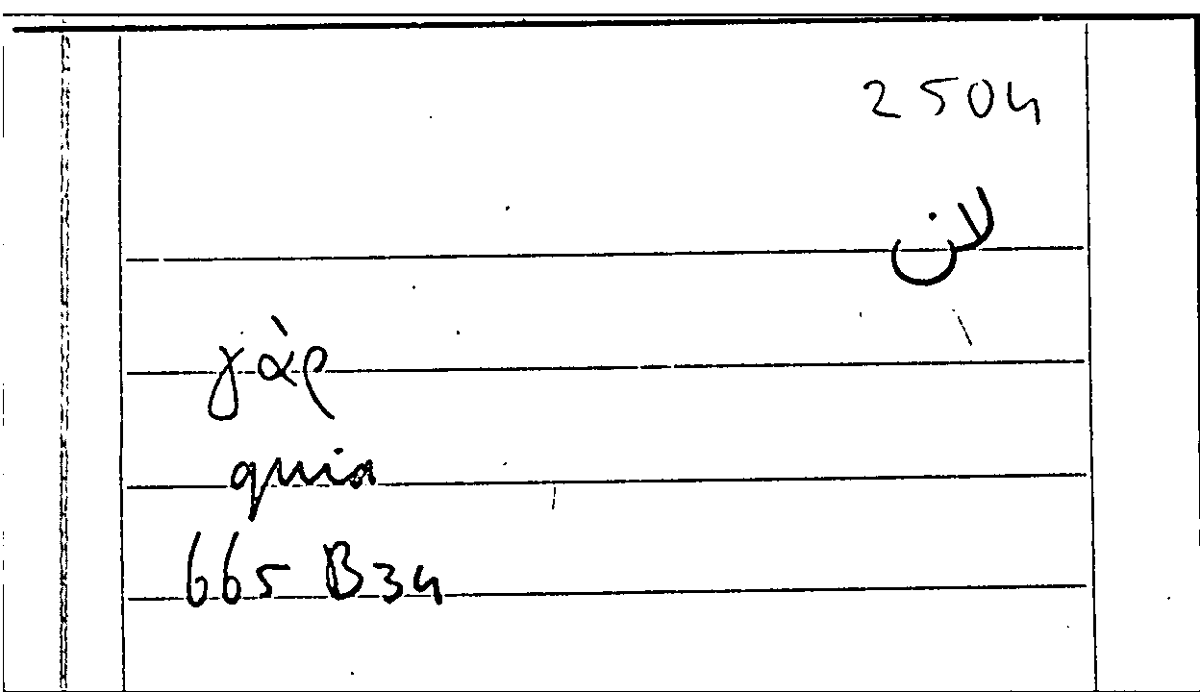 2504
لان
γὰρ
quia
665 B34